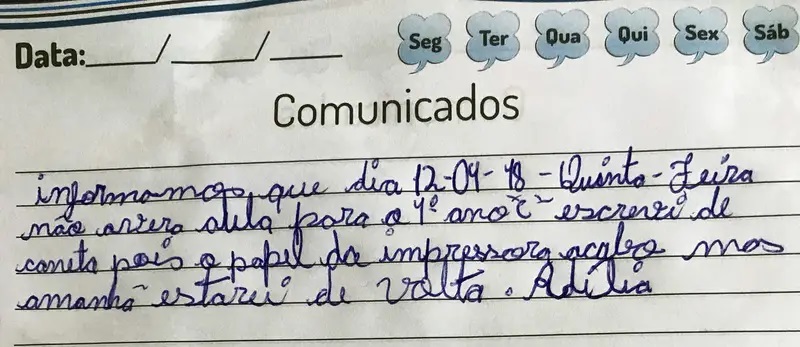 Data:____/____/____ Seg Ter Qua Qui Sex Sáb
Comunicados
informamos, que dia 12-04-18 - Quinta-Feira
não avera aula para o 4º ano "c" escrevi de
caneta pois o papel da impressora acabo mas
amanhã estarei de volta. Adília